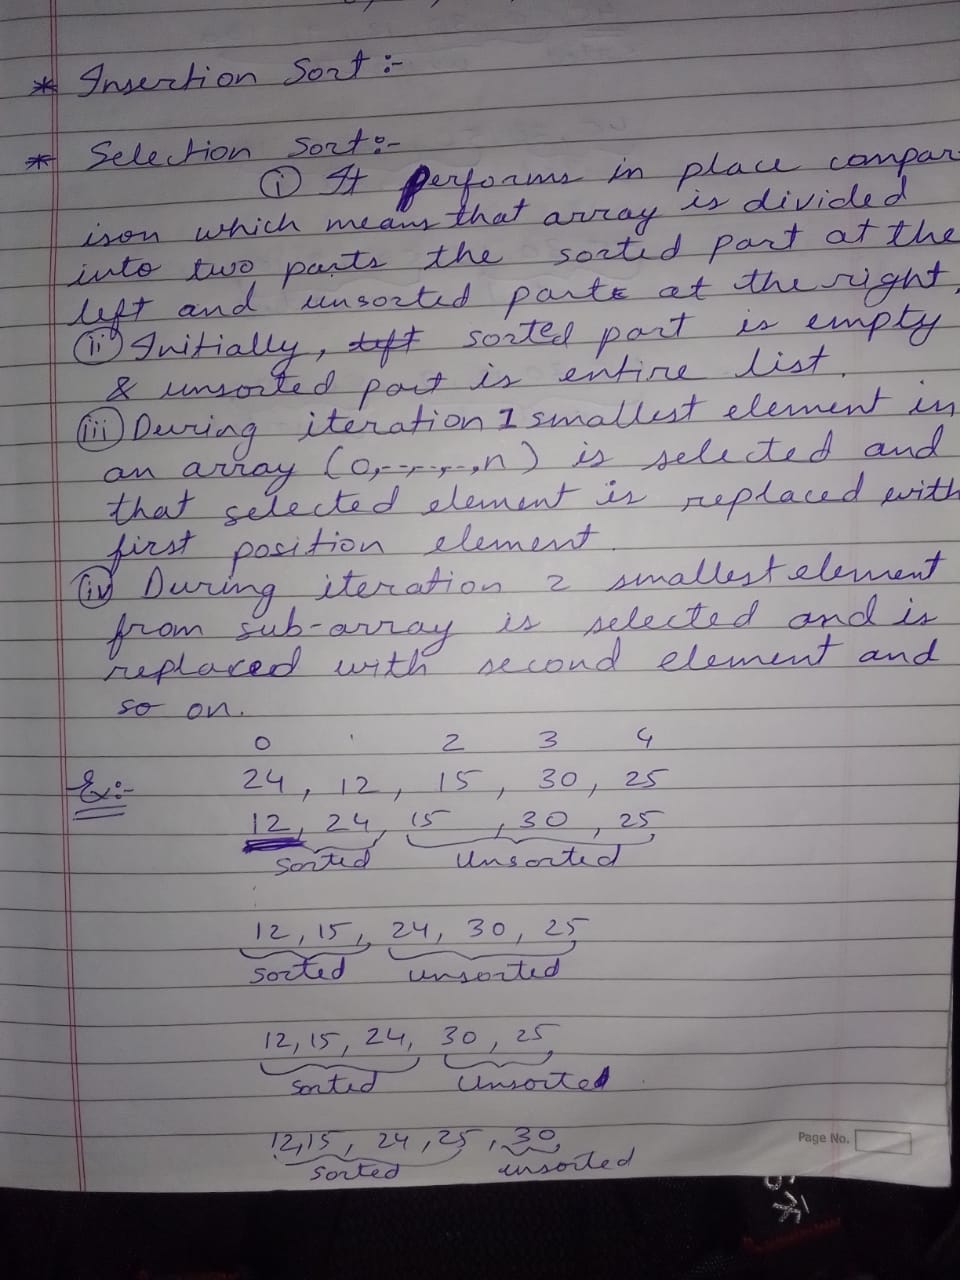 * Insertion Sort :-
* Selection Sort:-
(i) It performs in place compar
ison which means that array is divided
into two parts the sorted part at the
left and unsorted parts at the right.
(ii) Initially, left sorted part is empty
& unsorted part is entire list.
(iii) During iteration 1 smallest element in
an array (0,-,-,-,-,n) is selected and
that selected element is replaced with
first position element.
(iv) During iteration 2 smallest element
from sub-array is selected and is
replaced with second element and
so on.
0 ' 2 3 4
Ex:- 24, 12, 15, 30, 25
12, 24, 15, 30, 25
Sorted Unsorted
12, 15, 24, 30, 25
Sorted unsorted
12, 15, 24, 30, 25
Sorted Unsorted
12,15, 24, 25, 30,
Sorted unsorted
Page No.